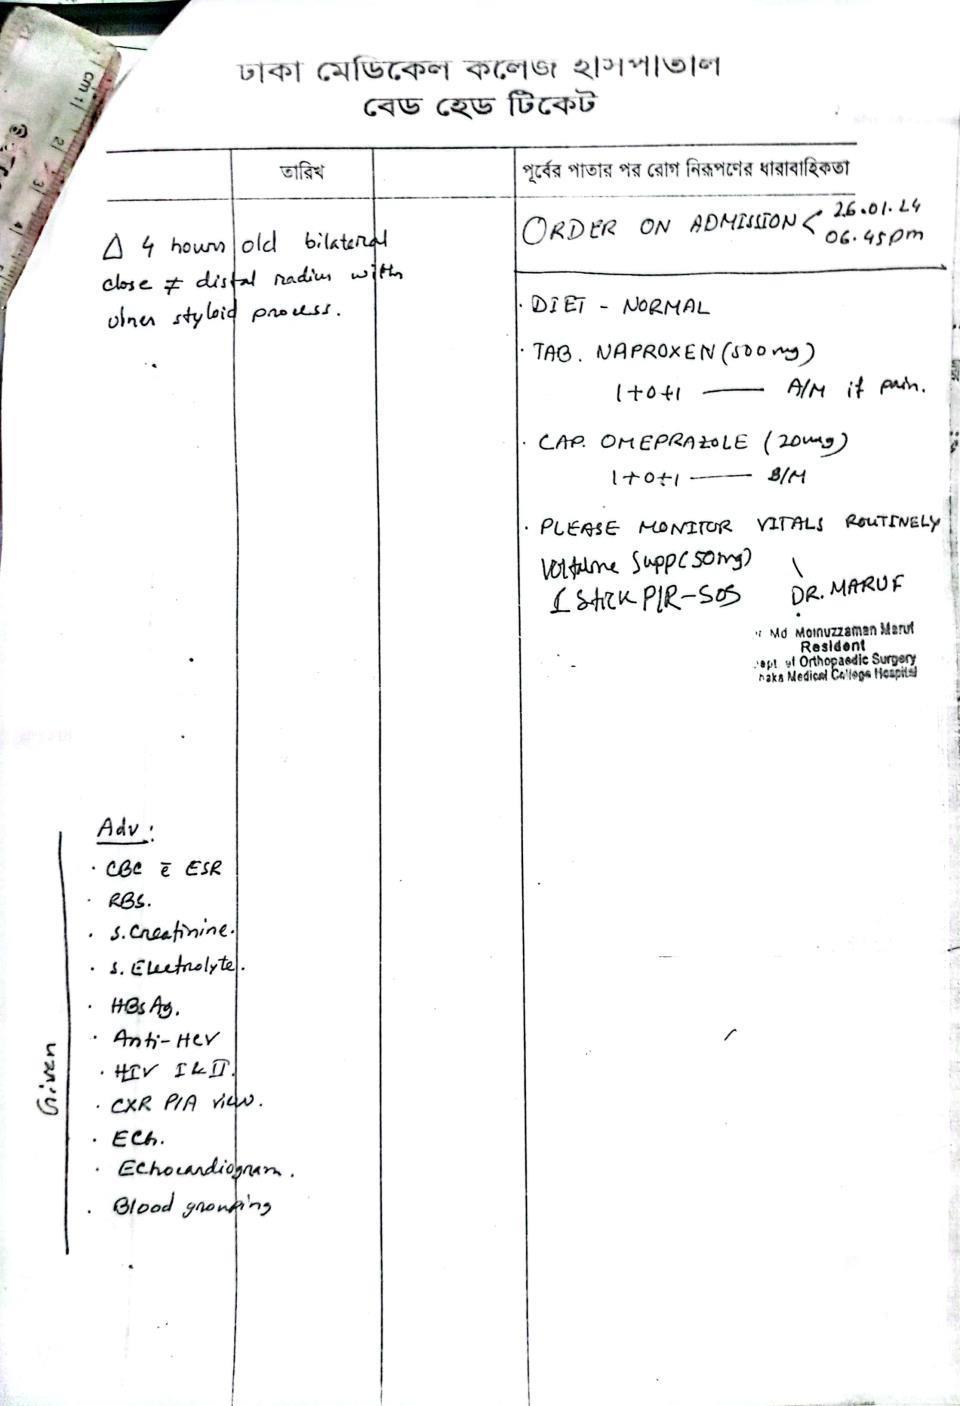 ঢাকা মেডিকেল কলেজ হাসপাতাল
বেড হেড টিকেট
তারিখ
পূর্বের পাতার পর রোগ নিরূপণের ধারাবাহিকতা
Δ 4 hours old bilateral
close ≠ distal radius with
ulner styloid process.
ORDER ON ADMISSION < 26.01.24
06.45pm
· DIET - NORMAL
· TAB. NAPROXEN (500mg)
1+0+1 —— A/M if pain.
· CAP. OMEPRAZOLE (20mg)
1+0+1 —— B/M
· PLEASE MONITOR VITALS ROUTINELY
Supp (50mg)
1 stick P/R-SOS
DR. MARUF
Md Moinuzzaman Maruf
Resident
of Orthopaedic Surgery
Medical College Hospital
Adv:
· CBC c̄ ESR
· RBS.
· S. Creatinine.
· S. Electrolyte.
· HBsAg.
· Anti-HCV
· HIV I & II.
· CXR P/A view.
· ECG.
· Echocardiogram.
· Blood grouping
Given
cm 1
2
3
4